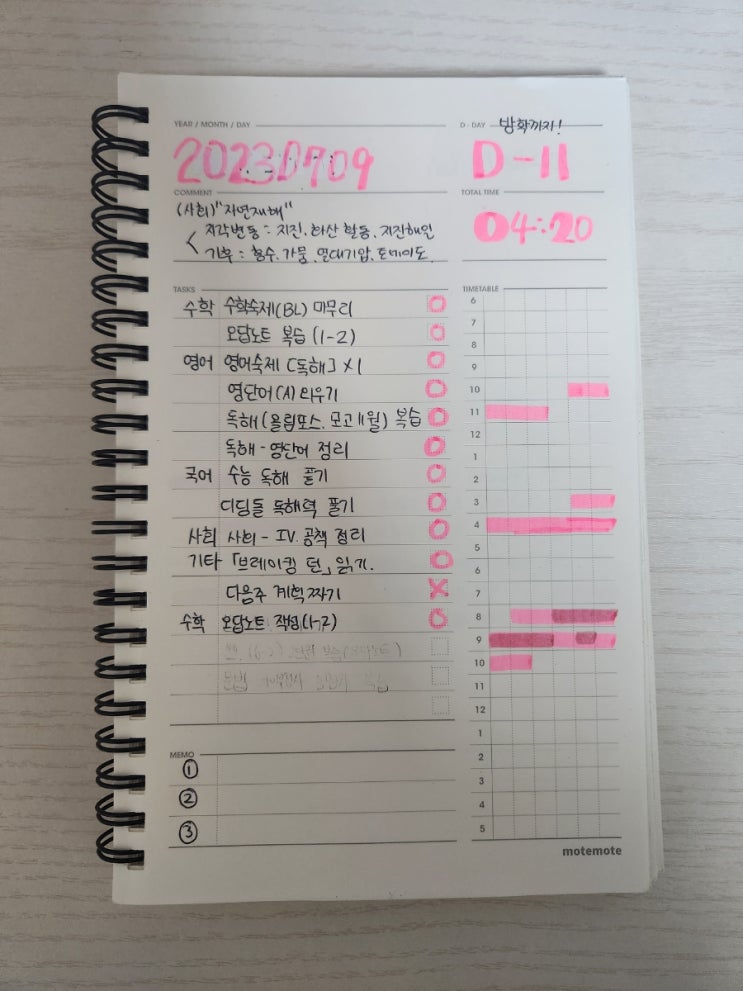 YEAR / MONTH / DAY
D - DAY 방학까지!
20230709
D-11
COMMENT
TOTAL TIME
(사회) "자연재해"
지각변동 : 지진, 화산 활동, 지진해일
기후 : 홍수, 가뭄, 열대기압, 토네이도
04:20
TASKS
수학 수학숙제(BL) 마무리
오답노트 복습 (1-2)
영어 영어숙제 [독해] X1
영단어(A) 외우기
독해(올림포스, 모고 11월) 복습
독해 - 영단어 정리
국어 수능 독해 풀기
디딤돌 독해력 풀기
사회 사회 - IV. 공책 정리
기타 「브레이킹 던」 읽기.
다음주 계획 짜기
X
수학 오답노트 작성(1-2)
MEMO
①
②
③
TIMETABLE
6
7
8
9
10
11
12
1
2
3
4
5
6
7
8
9
10
11
12
1
2
3
4
5
motemote